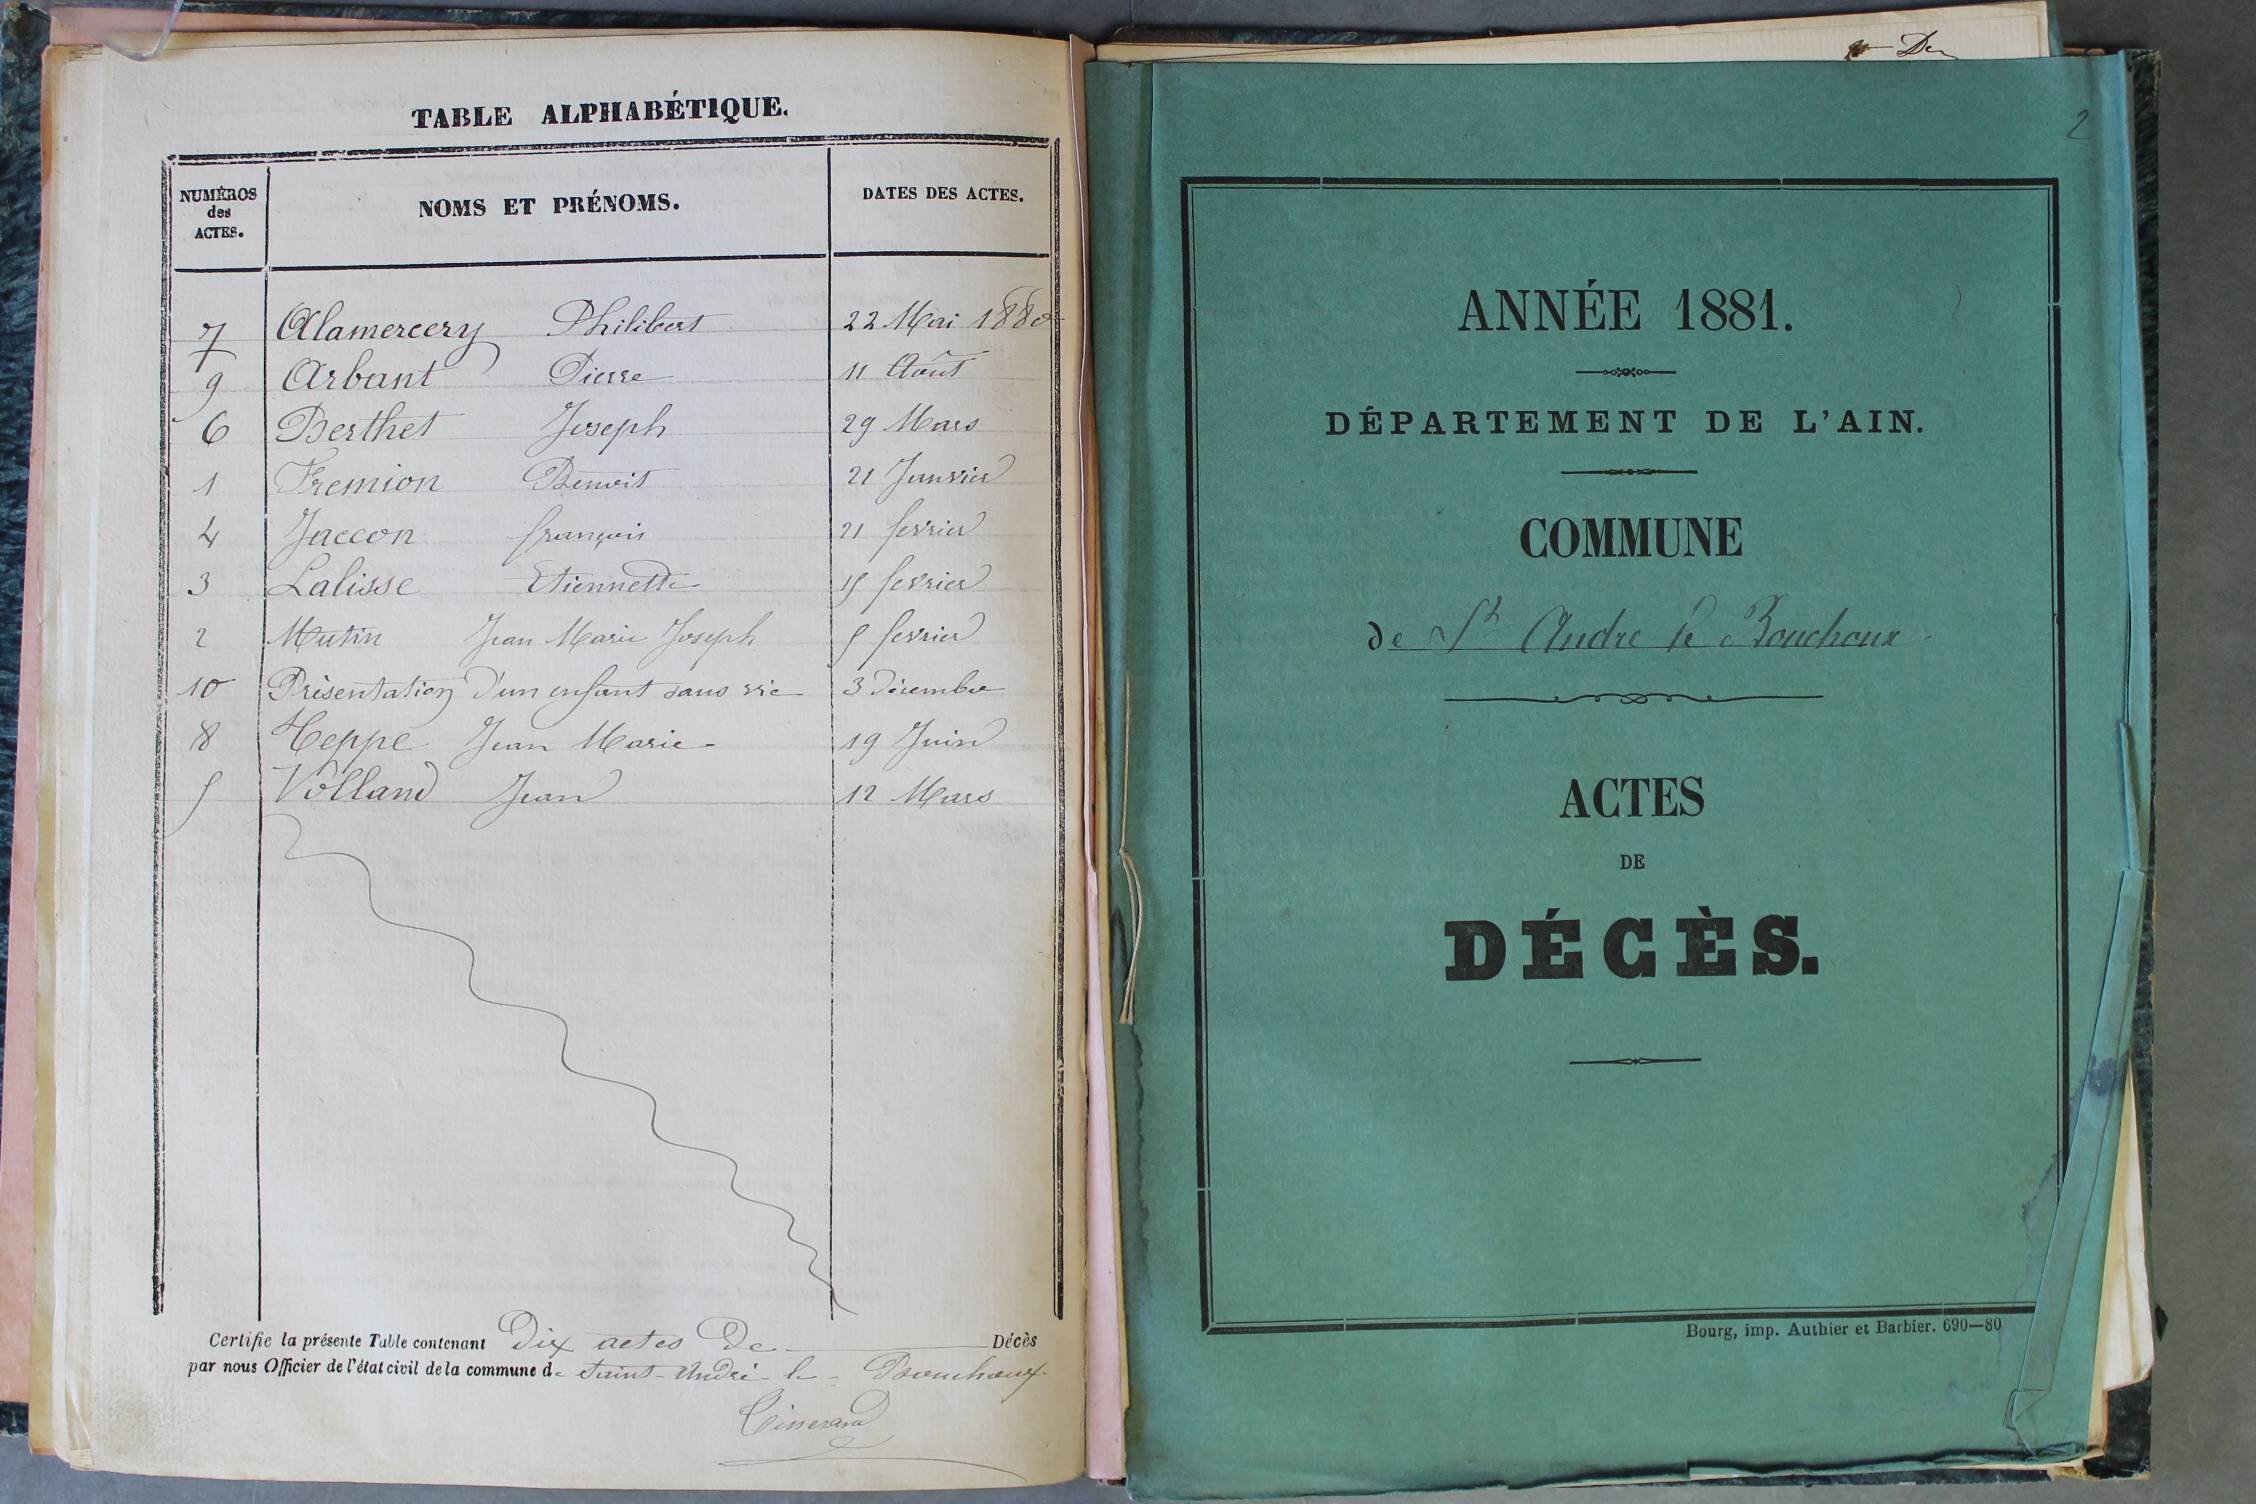 TABLE ALPHABÉTIQUE.
NUMÉROS
des
ACTES.
NOMS ET PRÉNOMS.
DATES DES ACTES.
7 Alamercery Philibert 22 Mai 1880
9 Arbant Pierre 11 Août
6 Berthet Joseph 29 Mars
1 Fremion Benoit 21 Janvier
4 Jaccon françois 21 fevrier
3 Lalisse Etiennette 15 fevrier
2 Mutin Jean Marie Joseph 5 fevrier
10 Présentation d'un enfant sans vie 3 Décembre
8 Teppe Jean Marie 19 Juin
5 Volland Jean 12 Mars
Certifie la présente Table contenant Dix actes De Décès
par nous Officier de l'état civil de la commune de Saint-André-le-Bouchoux
Tisserand
De
2
ANNÉE 1881.
DÉPARTEMENT DE L'AIN.
COMMUNE
de St Andre le Bouchoux
ACTES
DE
DÉCÈS.
Bourg, imp. Authier et Barbier. 690—80